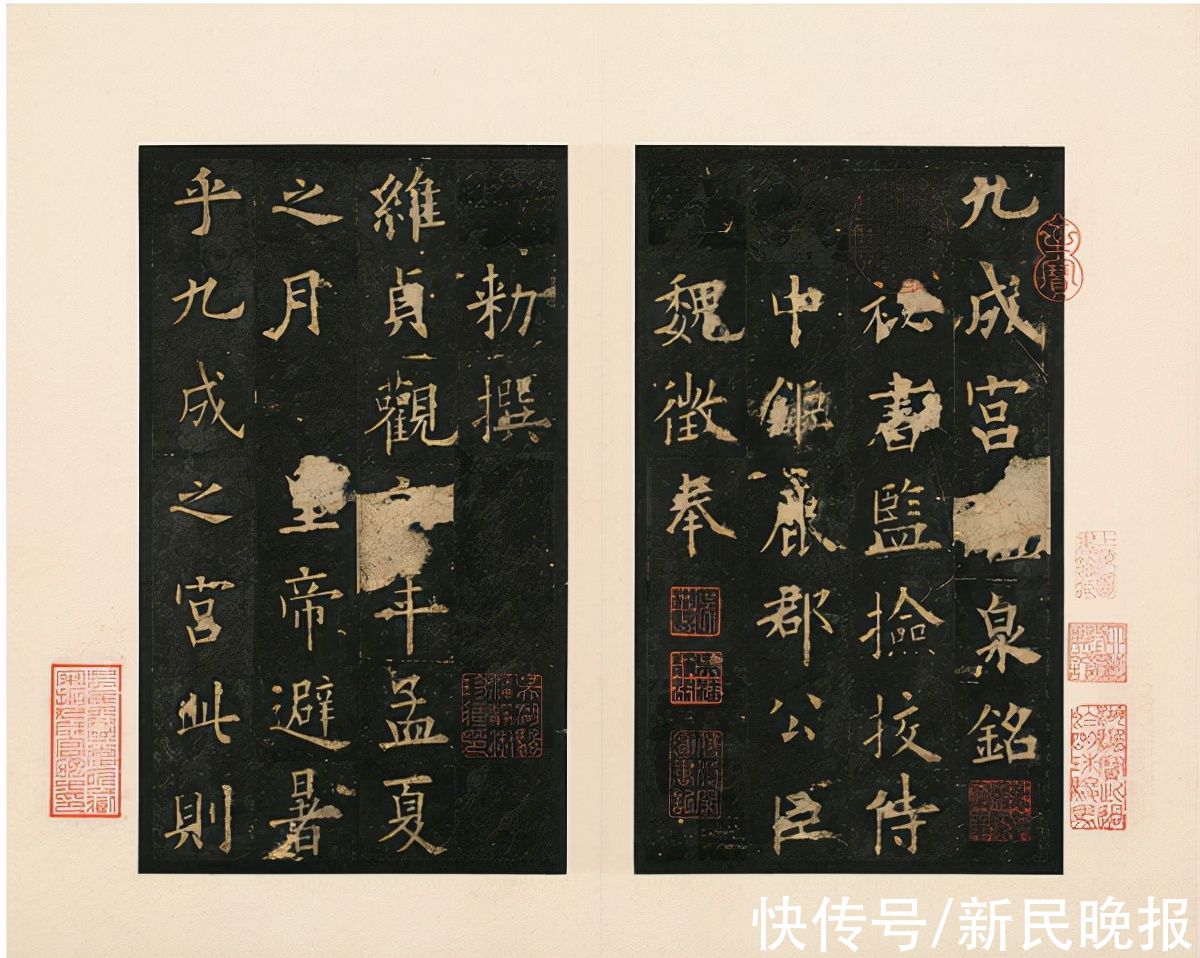 九成宮泉銘
秘書監撿挍侍
中鉅鹿郡公臣
魏徵奉
勑撰
維貞觀年孟夏
之月皇帝避暑
乎九成之宮此則
快传号/新民晚报